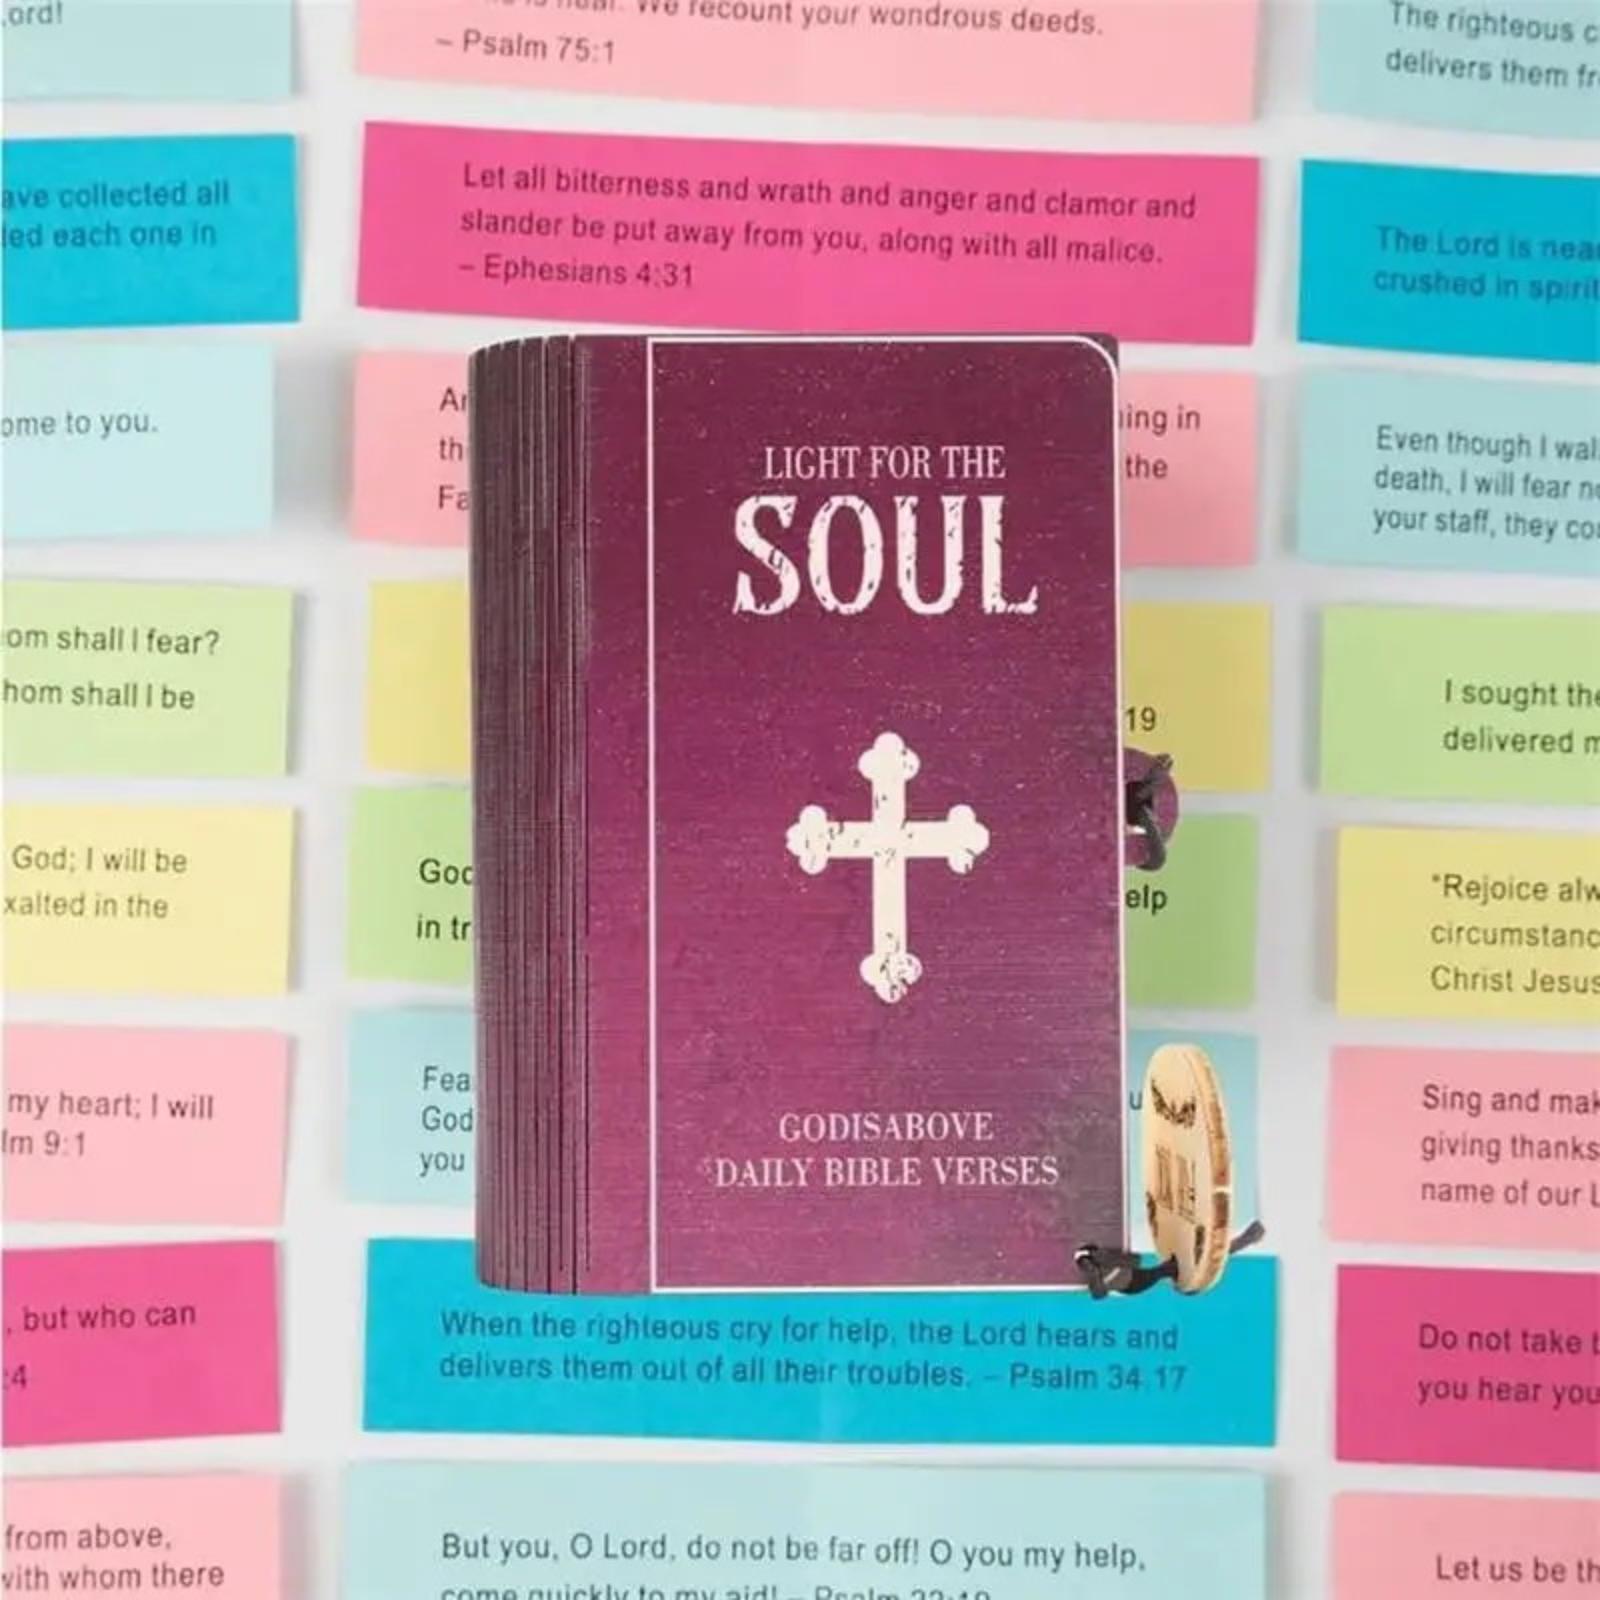 .ord!
We recount your wondrous deeds.
– Psalm 75:1
The righteous c
delivers them fr
ave collected all
ed each one in
Let all bitterness and wrath and anger and clamor and
slander be put away from you, along with all malice.
– Ephesians 4:31
The Lord is nea
crushed in spirit
ome to you.
Ar
th
Fa
ing in
the
Even though I wal
death, I will fear no
your staff, they co
LIGHT FOR THE
SOUL
om shall I fear?
hom shall I be
19
I sought the
delivered m
God; I will be
xalted in the
God
in tr
elp
"Rejoice alw
circumstanc
Christ Jesus
my heart; I will
lm 9:1
Fea
God
you
u
Sing and mak
giving thanks
name of our L
GODISABOVE
DAILY BIBLE VERSES
, but who can
:4
When the righteous cry for help, the Lord hears and
delivers them out of all their troubles. – Psalm 34.17
Do not take t
you hear you
from above,
with whom there
But you, O Lord, do not be far off! O you my help,
come quickly to my aid! – Psalm 22:19
Let us be th